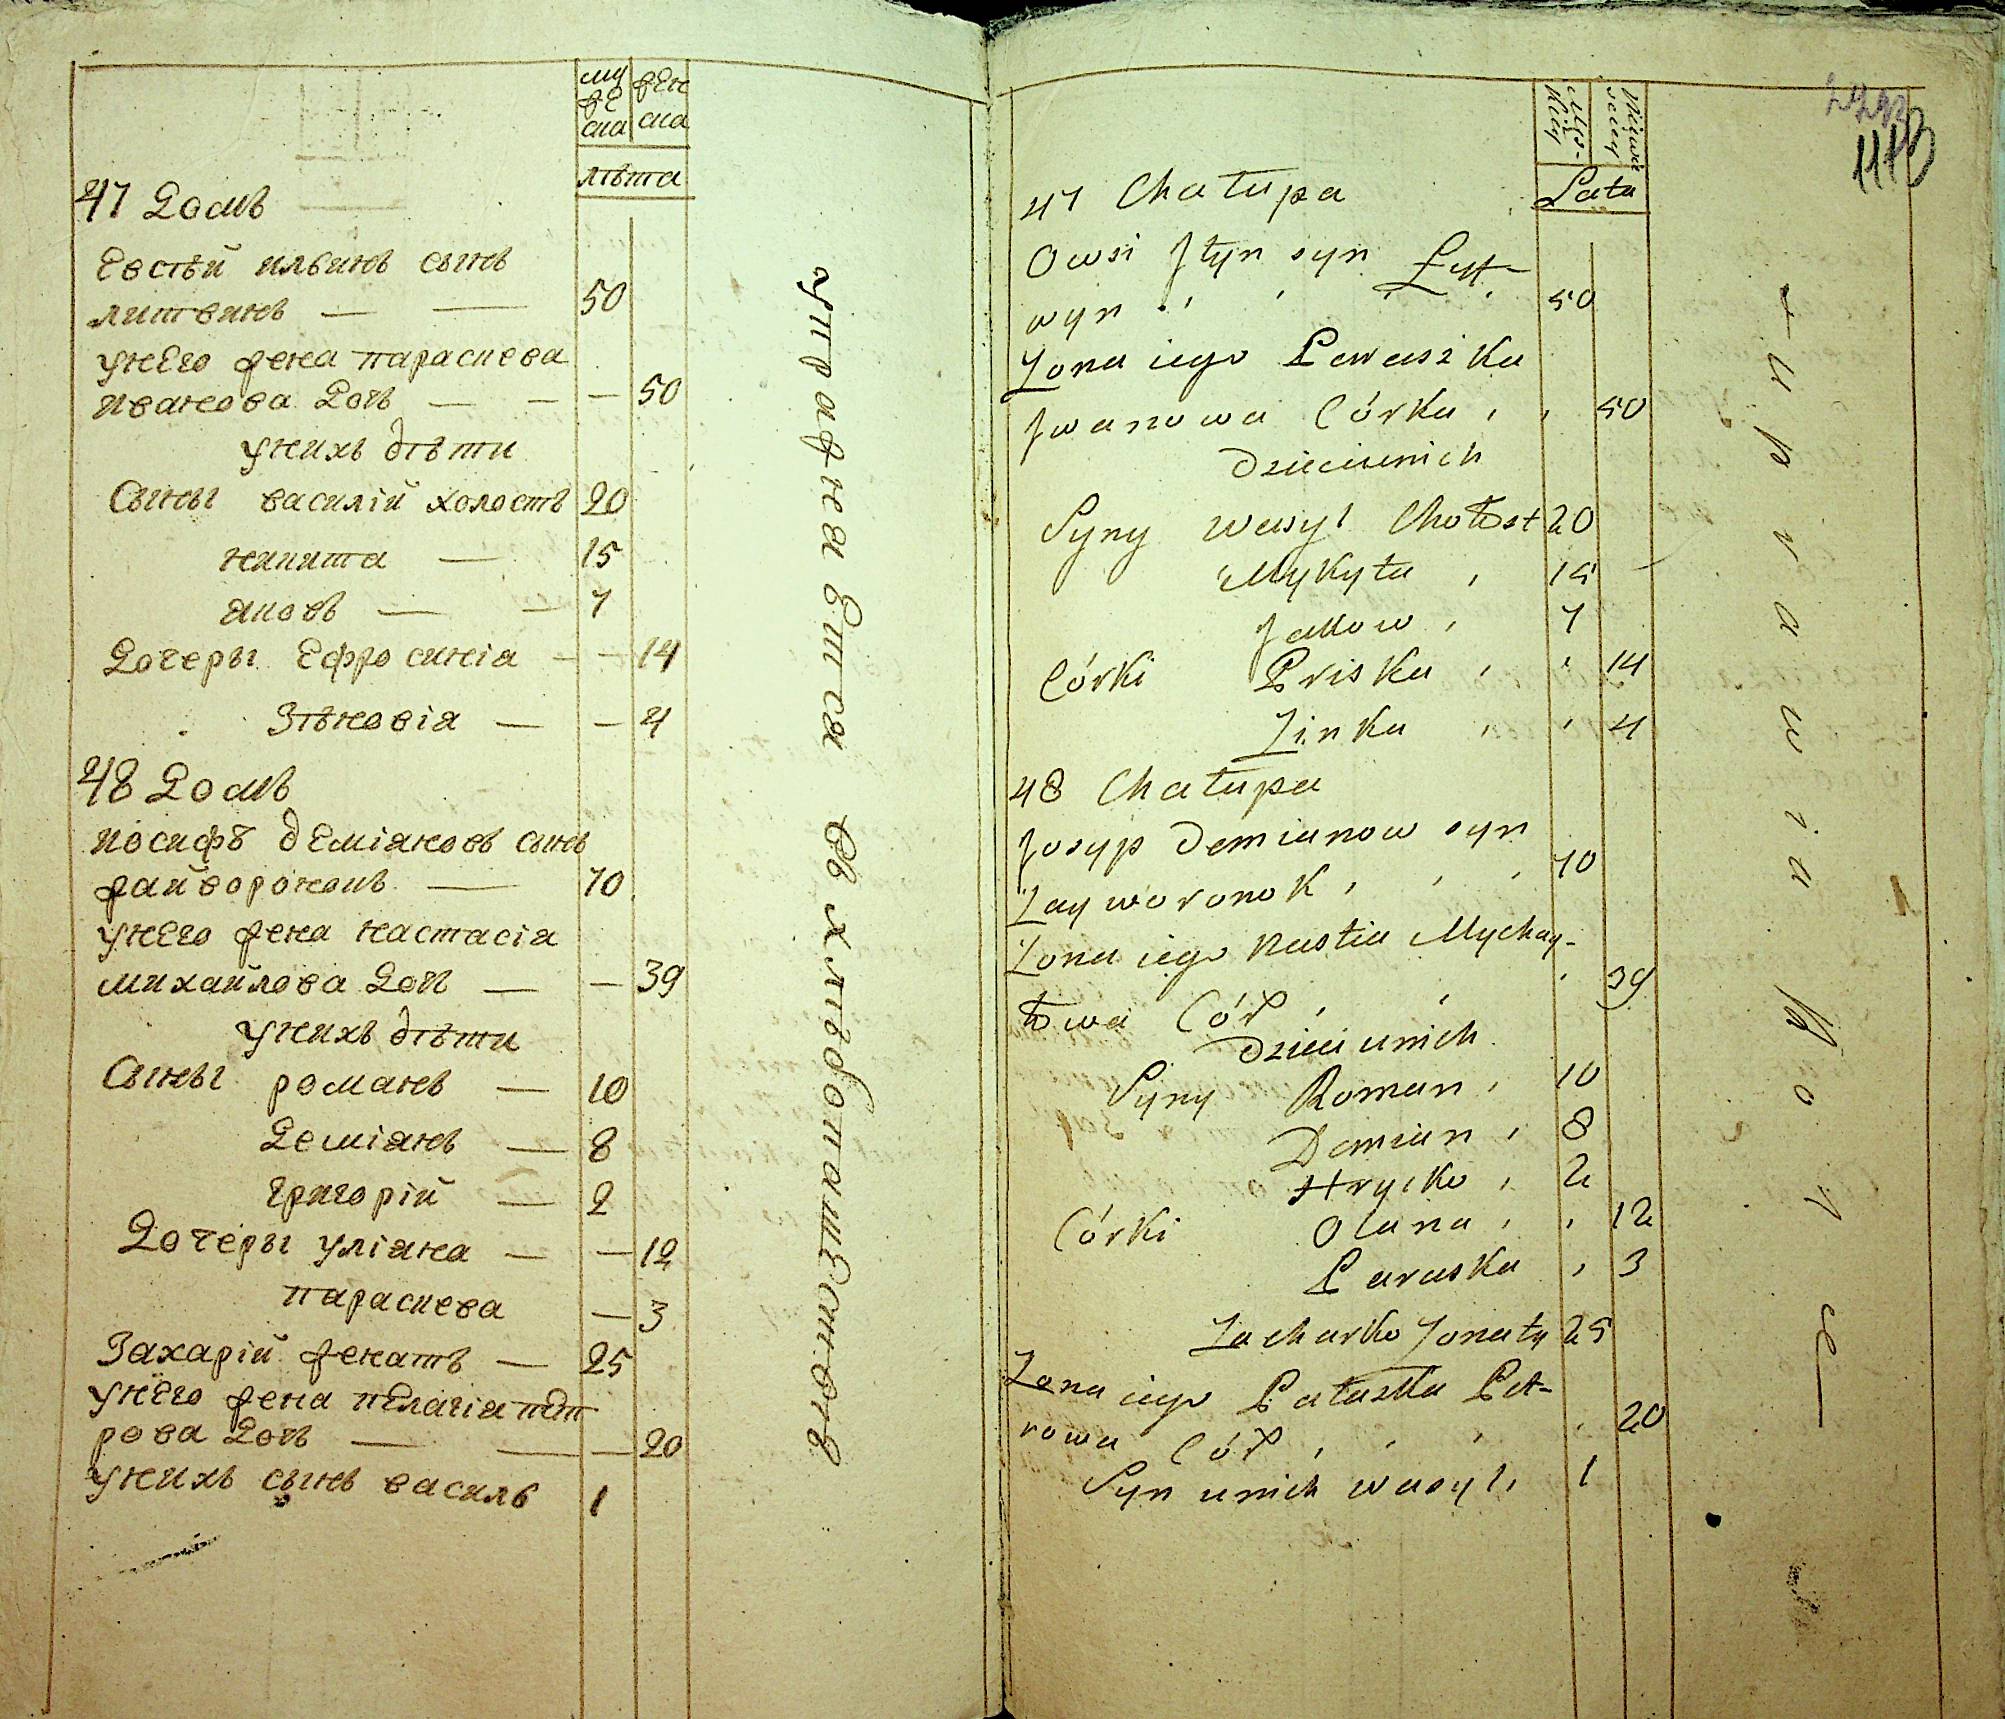 муже
ска
жен
ска
лѣта
47 Домъ
Евстѣй ильинъ сынъ
литвинъ — — 50
унего жена параскева
иванова Дочь — — — 50
унихъ дѣти
Сыны василій холостъ 20
никита — 15
яковъ — — 7
Дочеры Ефросинія — — 14
Зѣновія — — 4
48 Домъ
иосифъ деміяновъ сынъ
жайворонокъ — 70
унего жена настасія
михайлова Дочь — — 39
унихъ дѣти
Сыны романъ — 10
Деміянъ — 8
григорій — 2
Дочеры уліяна — — 12
параскева — 3
Захарій женатъ — 25
унего жена пелагія пет
рова Дочь — — — 20
унихъ сынъ василь 1
упражняется въ хлѣбопашествѣ
1173
Męs-
kiey
Lata
47 Chałupa
Owsi Jłyn syn Łytt-
wyn 50
Zona iego Parasika
Jwanowa Córka 50
Dzieci unich
Syny Wasyl Chołost 20
Mykyta 15
Jakow 7
Córki Priska 14
Zinka 4
48 Chałupa
Josyp Demianow syn
Zayworonok 70
Zona iego Nastia Mychay-
łowa Cór 39
Dzieci unich
Syny Roman 10
Demian 8
Hrycko 2
Córki Olana 12
Paraska 3
Zacharko Zonaty 25
Zona iego Pałazka Pet-
rowa Cór 20
Syn unich Wasyl 1
uprawia Role